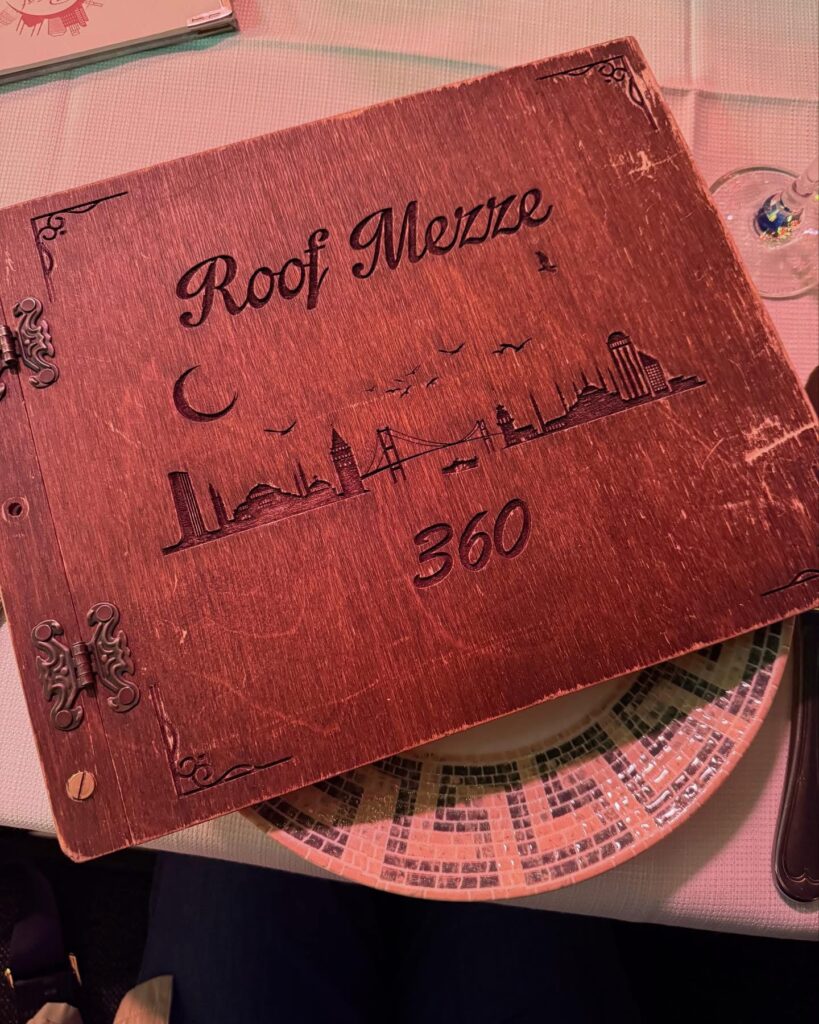 Roof Mezze
360